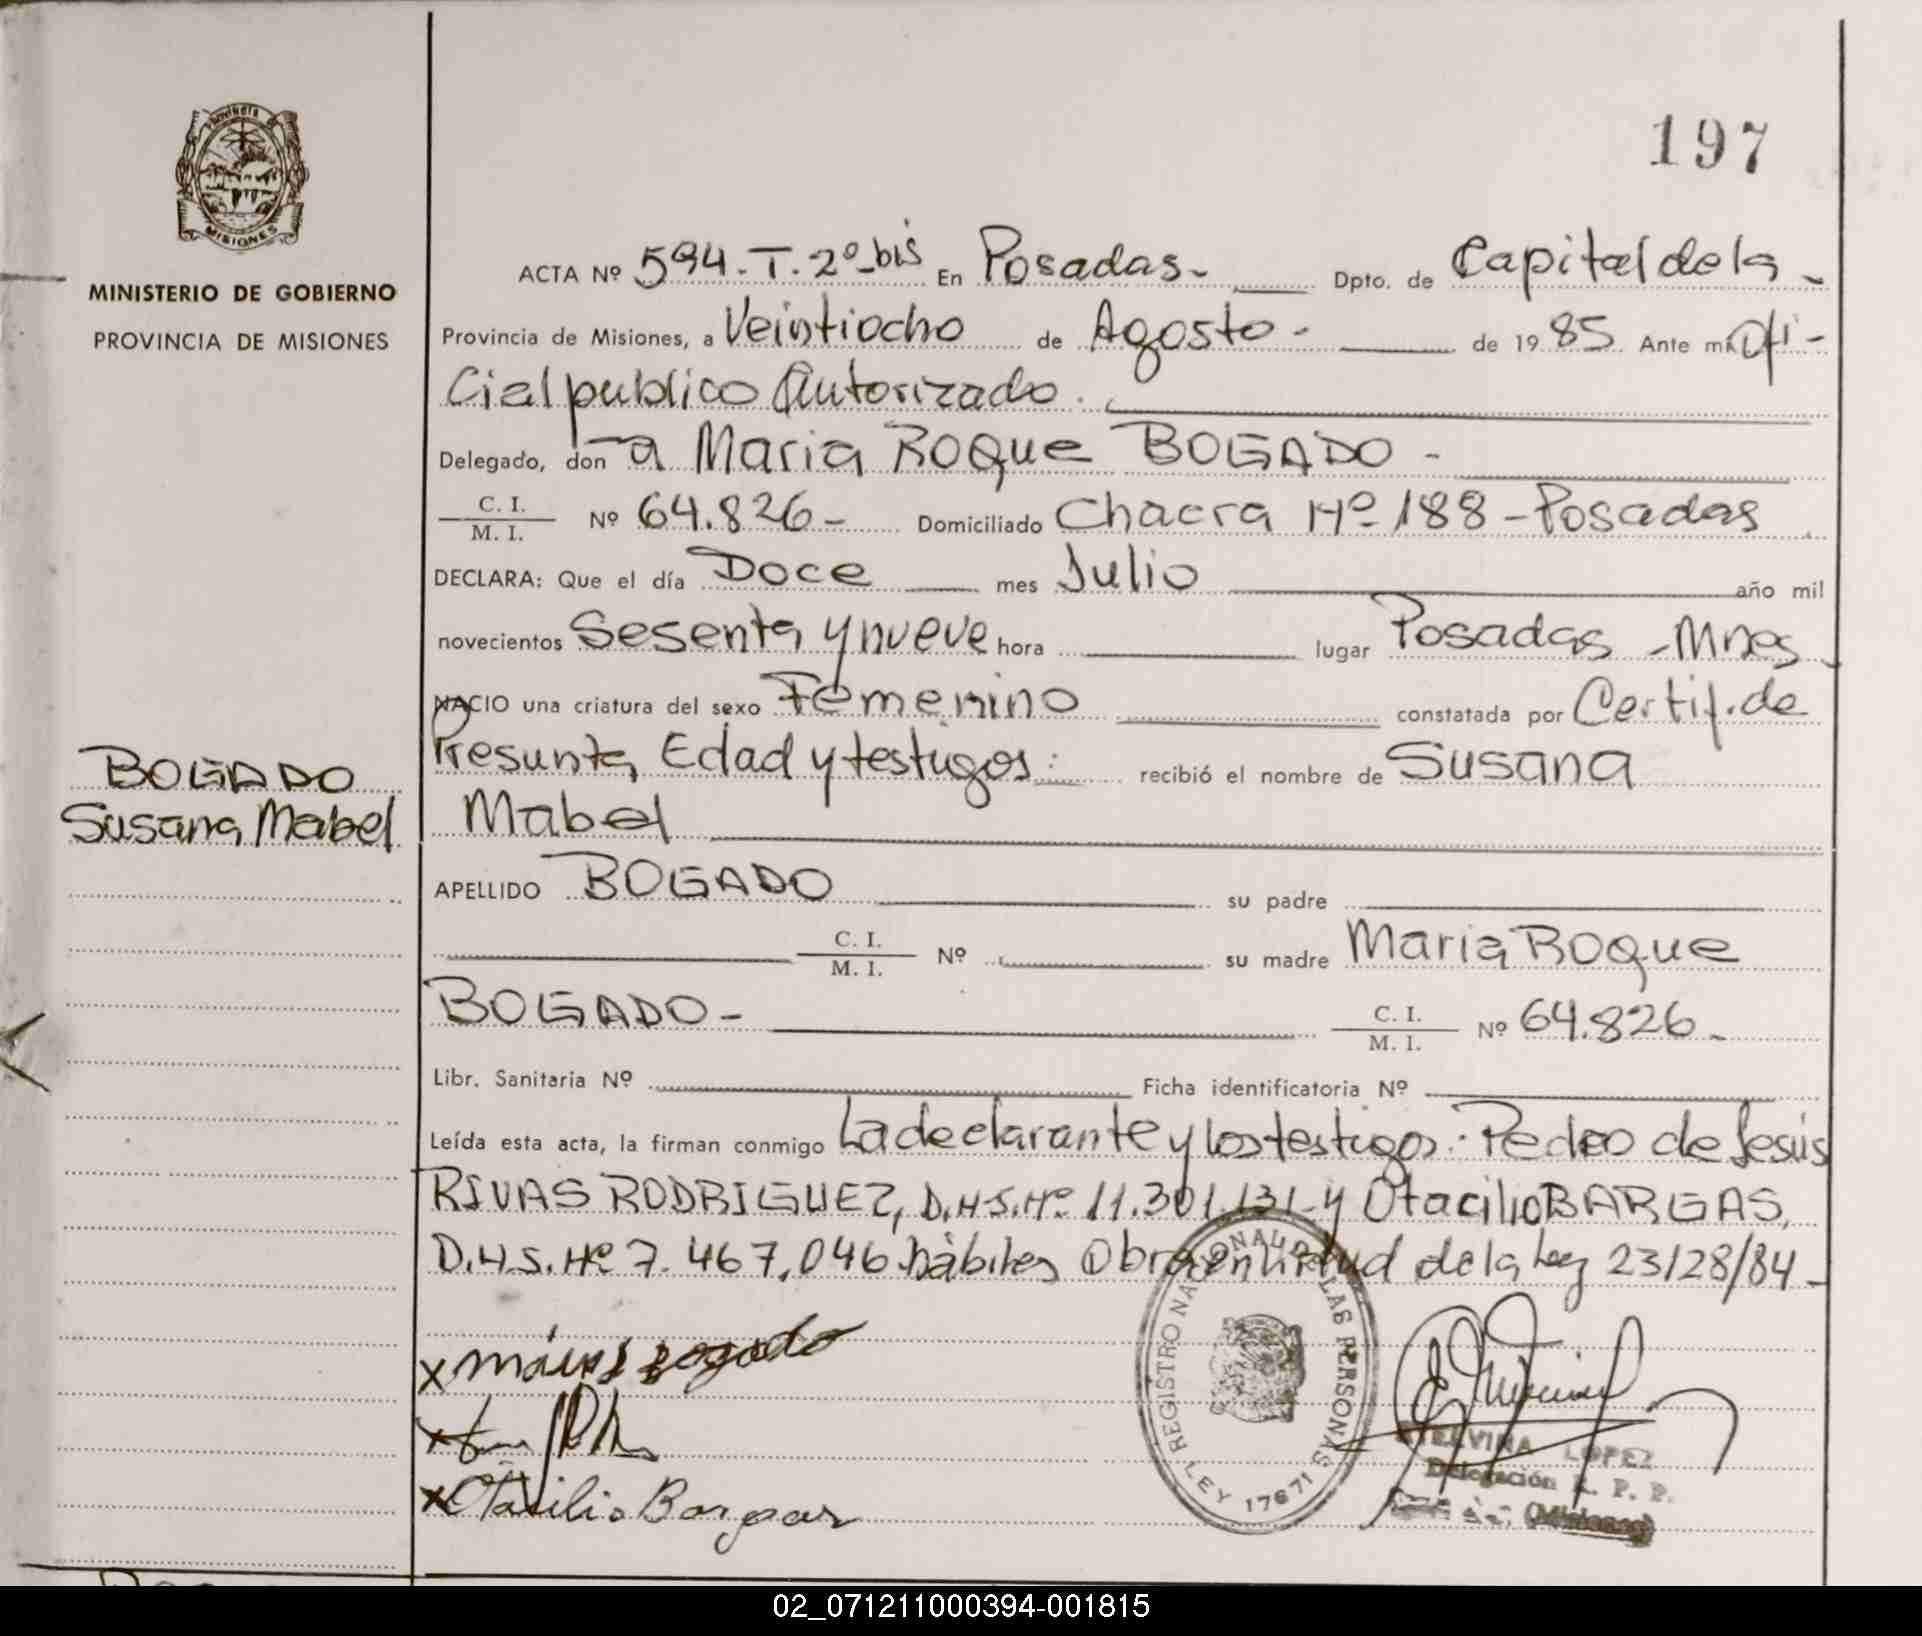 197
Provincia de
MISIONES
MINISTERIO DE GOBIERNO
PROVINCIA DE MISIONES
ACTA Nº 594.T.2º-bis En Posadas- Dpto. de Capital de la -
Provincia de Misiones, a Veintiocho de Agosto - de 1985 Ante mi Ofi-
cial publico Autorizado.
Delegado, don-a Maria ROQue BOGADO -
C. I.
M. I.
Nº 64.826- Domiciliado Chacra Nº 188-Posadas
DECLARA: Que el día Doce mes Julio año mil
novecientos Sesenta y nueve hora lugar Posadas - Mnes
NACIO una criatura del sexo Femenino constatada por Certif. de
Presunta Edad y testigos: recibió el nombre de Susana
Mabel
BOGADO
Susana Mabel
APELLIDO BOGADO su padre
C. I.
M. I.
Nº su madre Maria ROque
BOGADO-
C. I.
M. I.
Nº 64.826-
Libr. Sanitaria Nº Ficha identificatoria Nº
Leída esta acta, la firman conmigo La declarante y los testigos: Pedro de Jesús
RIVAS RODRIGUEZ, D.N.I. Nº 11.301.131-y Otacilio BARGAS,
D.N.I. Nº 7.467.046 hábiles Obra en virtud de la Ley 23128/84-
x Bogado
x
x Otasilio Bargas
REGISTRO NACIONAL DE LAS PERSONAS
LEY 17671
ELVIRA LOPEZ
Delegación R. P. P.
(Misiones)
02_071211000394-001815